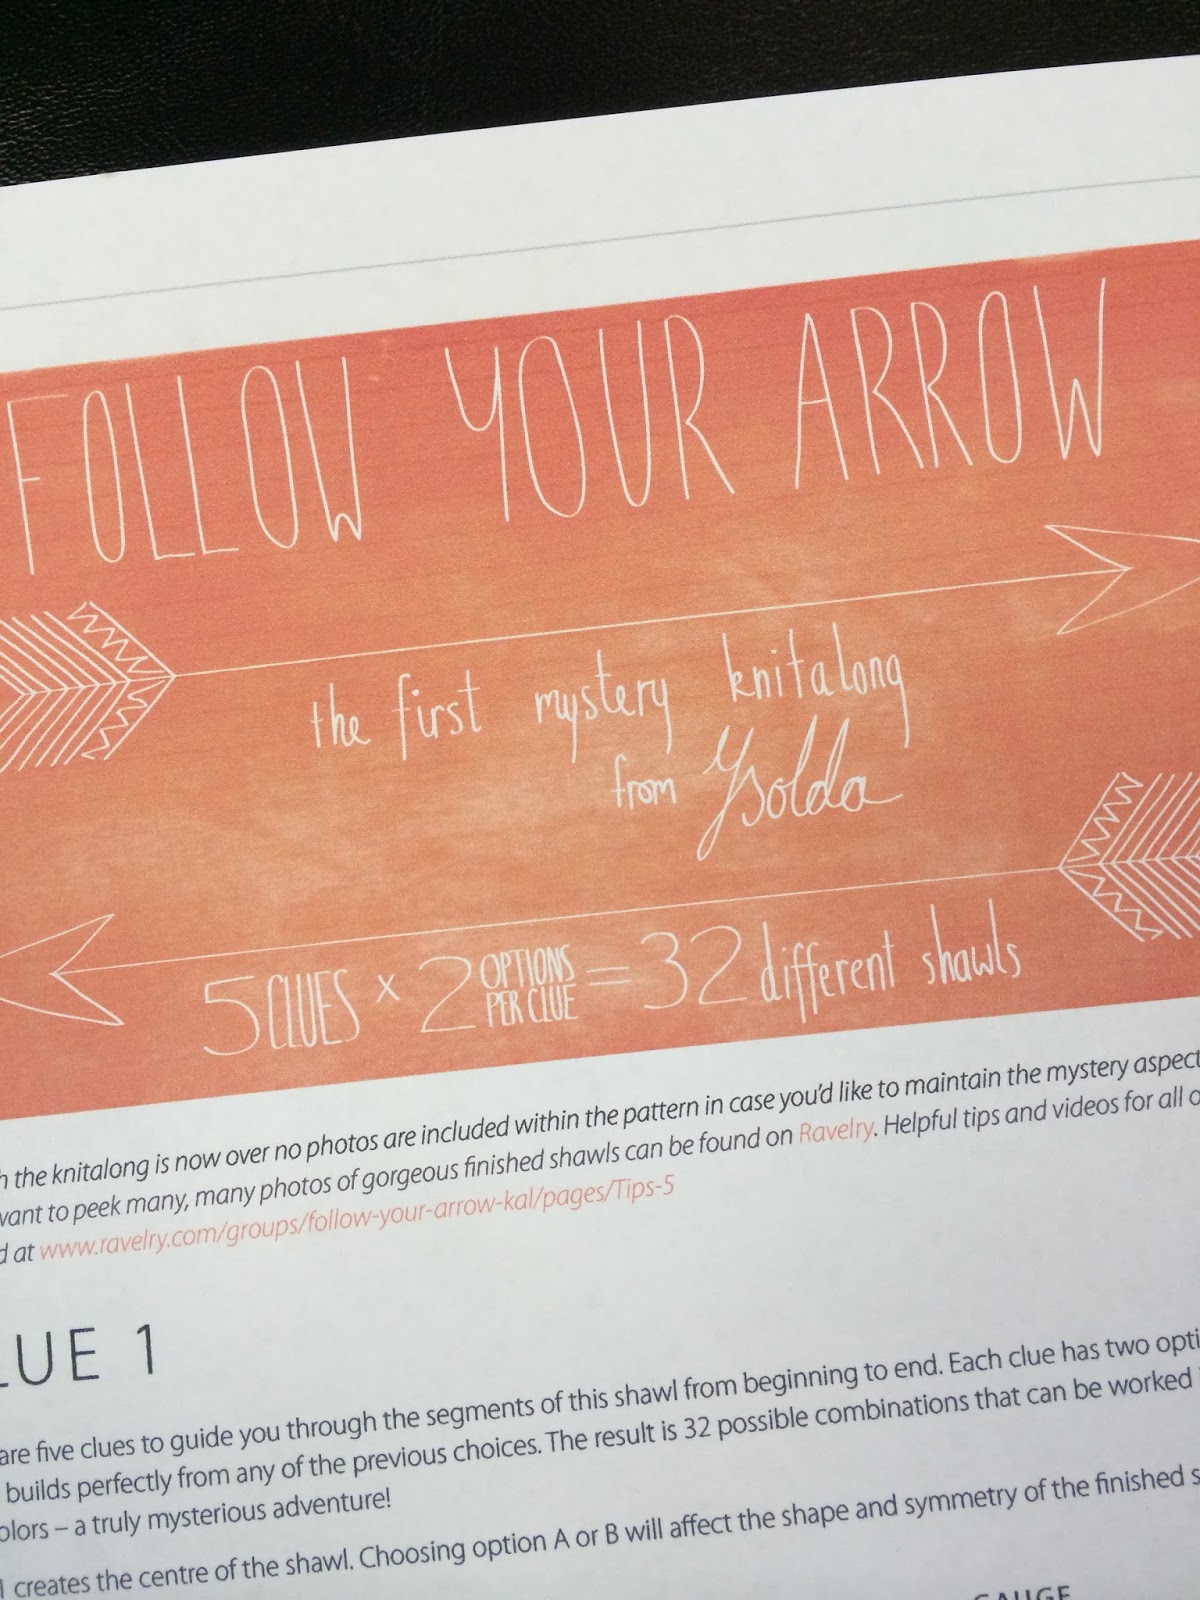 FOLLOW YOUR ARROW
the first mystery knitalong
from Ysolda
5 CLUES x 2 OPTIONS PER CLUE = 32 different shawls
the knitalong is now over no photos are included within the pattern in case you'd like to maintain the mystery aspect
want to peek many, many photos of gorgeous finished shawls can be found on Ravelry. Helpful tips and videos for all
at www.ravelry.com/groups/follow-your-arrow-kal/pages/Tips-5
CLUE 1
are five clues to guide you through the segments of this shawl from beginning to end. Each clue has two opti
builds perfectly from any of the previous choices. The result is 32 possible combinations that can be worked
olors – a truly mysterious adventure!
1 creates the centre of the shawl. Choosing option A or B will affect the shape and symmetry of the finished s
GAUGE